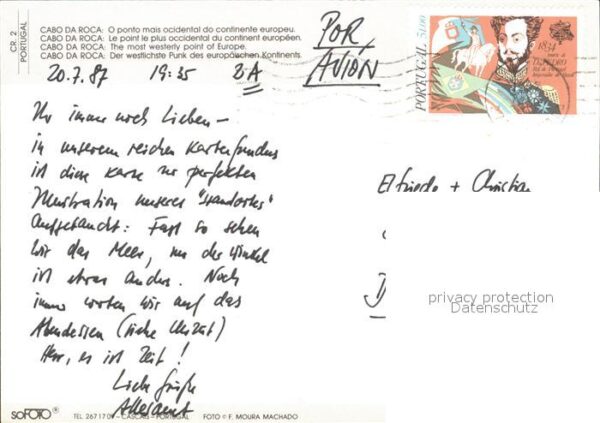 CR. 2
PORTUGAL
CABO DA ROCA: O ponto mais ocidental do continente europeu.
CABO DA ROCA: Le point le plus occidental du continent européen.
CABO DA ROCA: The most westerly point of Europe.
CABO DA ROCA: Der westlichste Punk des europäischen Kontinents.
POR
AVIÓN
20.7.87 19:35
PORTUGAL 51.00
1834
D. PEDRO
Ihr immer noch Lieben –
in unserem reichen Kartenfundus
ist diese Karte zur perfekten
Illustration unseres "Standortes"
aufgetaucht: Fast so sehen
wir das Meer, nur der Winkel
ist etwas anders. Noch
immer warten wir auf das
Abendessen (siehe Uhrzeit)
Herr, es ist Zeit!
Liebe Grüße
Elfriede + Christian
D
privacy protection
Datenschutz
soFOTO ® TEL. 267 17 09 – CASCAIS – PORTUGAL FOTO © F. MOURA MACHADO